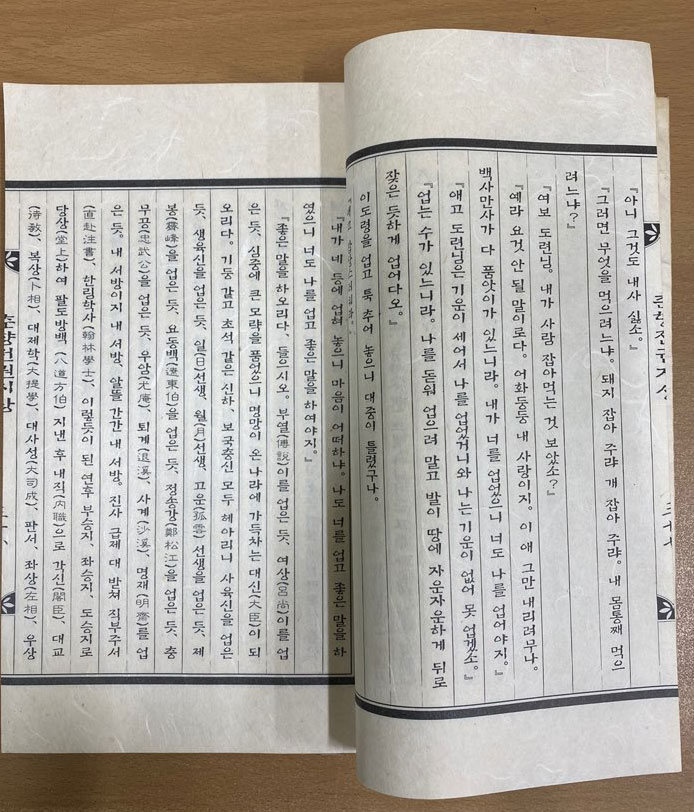 『아니 그것도 내사 싫소。』
『그러면 무엇을 먹으려느냐。돼지 잡아 주랴 개 잡아 주랴。내 몸통째 먹으
려느냐？』
『여보 도련님。내가 사람 잡아먹는 것 보았소？』
『예라 요것 안 될 말이로다。어화둥둥 내 사랑이지。이 애 그만 내리려무나。
백사만사가 다 품앗이가 있느니라。내가 너를 업었으니 너도 나를 업어야지。』
『애고 도련님은 기운이 세어서 나를 업었거니와 나는 기운이 없어 못 업겠소。』
『업는 수가 있느니라。나를 돋워 업으려 말고 발이 땅에 자운자운하게 뒤로
잦은 듯하게 업어다오。』
이도령을 업고 툭 추어 놓으니 대중이 틀렸구나。
『내가 네 등에 업혀 놓으니 마음이 어떠하냐。나도 너를 업고 좋은 말을 하
였으니 너도 나를 업고 좋은 말을 하여야지。』
『좋은 말을 하오리다、들으시오。부열(傅說)이를 업은 듯、여상(呂尙)이를 업
은 듯、심중에 큰 모략을 품었으니 명망이 온 나라에 가득차는 대신(大臣)이 되
오리다。기둥 같고 초석 같은 신하、보국충신 모두 헤아리니 사육신을 업은
듯、생육신을 업은 듯、일(日)선생、월(月)선생、고운(孤雲)선생을 업은 듯、제
봉(霽峰)을 업은 듯、요동백(遼東伯)을 업은 듯、정송강(鄭松江)을 업은 듯、충
무공(忠武公)을 업은 듯、우암(尤庵)、퇴계(退溪)、사계(沙溪)、명재(明齋)를 업
은 듯。내 서방이지 내 서방、알뜰 간간 내 서방。진사 급제 대 받쳐 직부주서
(直赴注書)、한림학사(翰林學士)、이렇듯이 된 연후 부승지、좌승지、도승지로
당상(堂上)하여 팔도방백(八道方伯) 지낸 후 내직(內職)으로 각신(閣臣)、대교
(待敎)、복상(卜相)、대제학(大提學)、대사성(大司成)、판서、좌상(左相)、우상
춘향전권지상